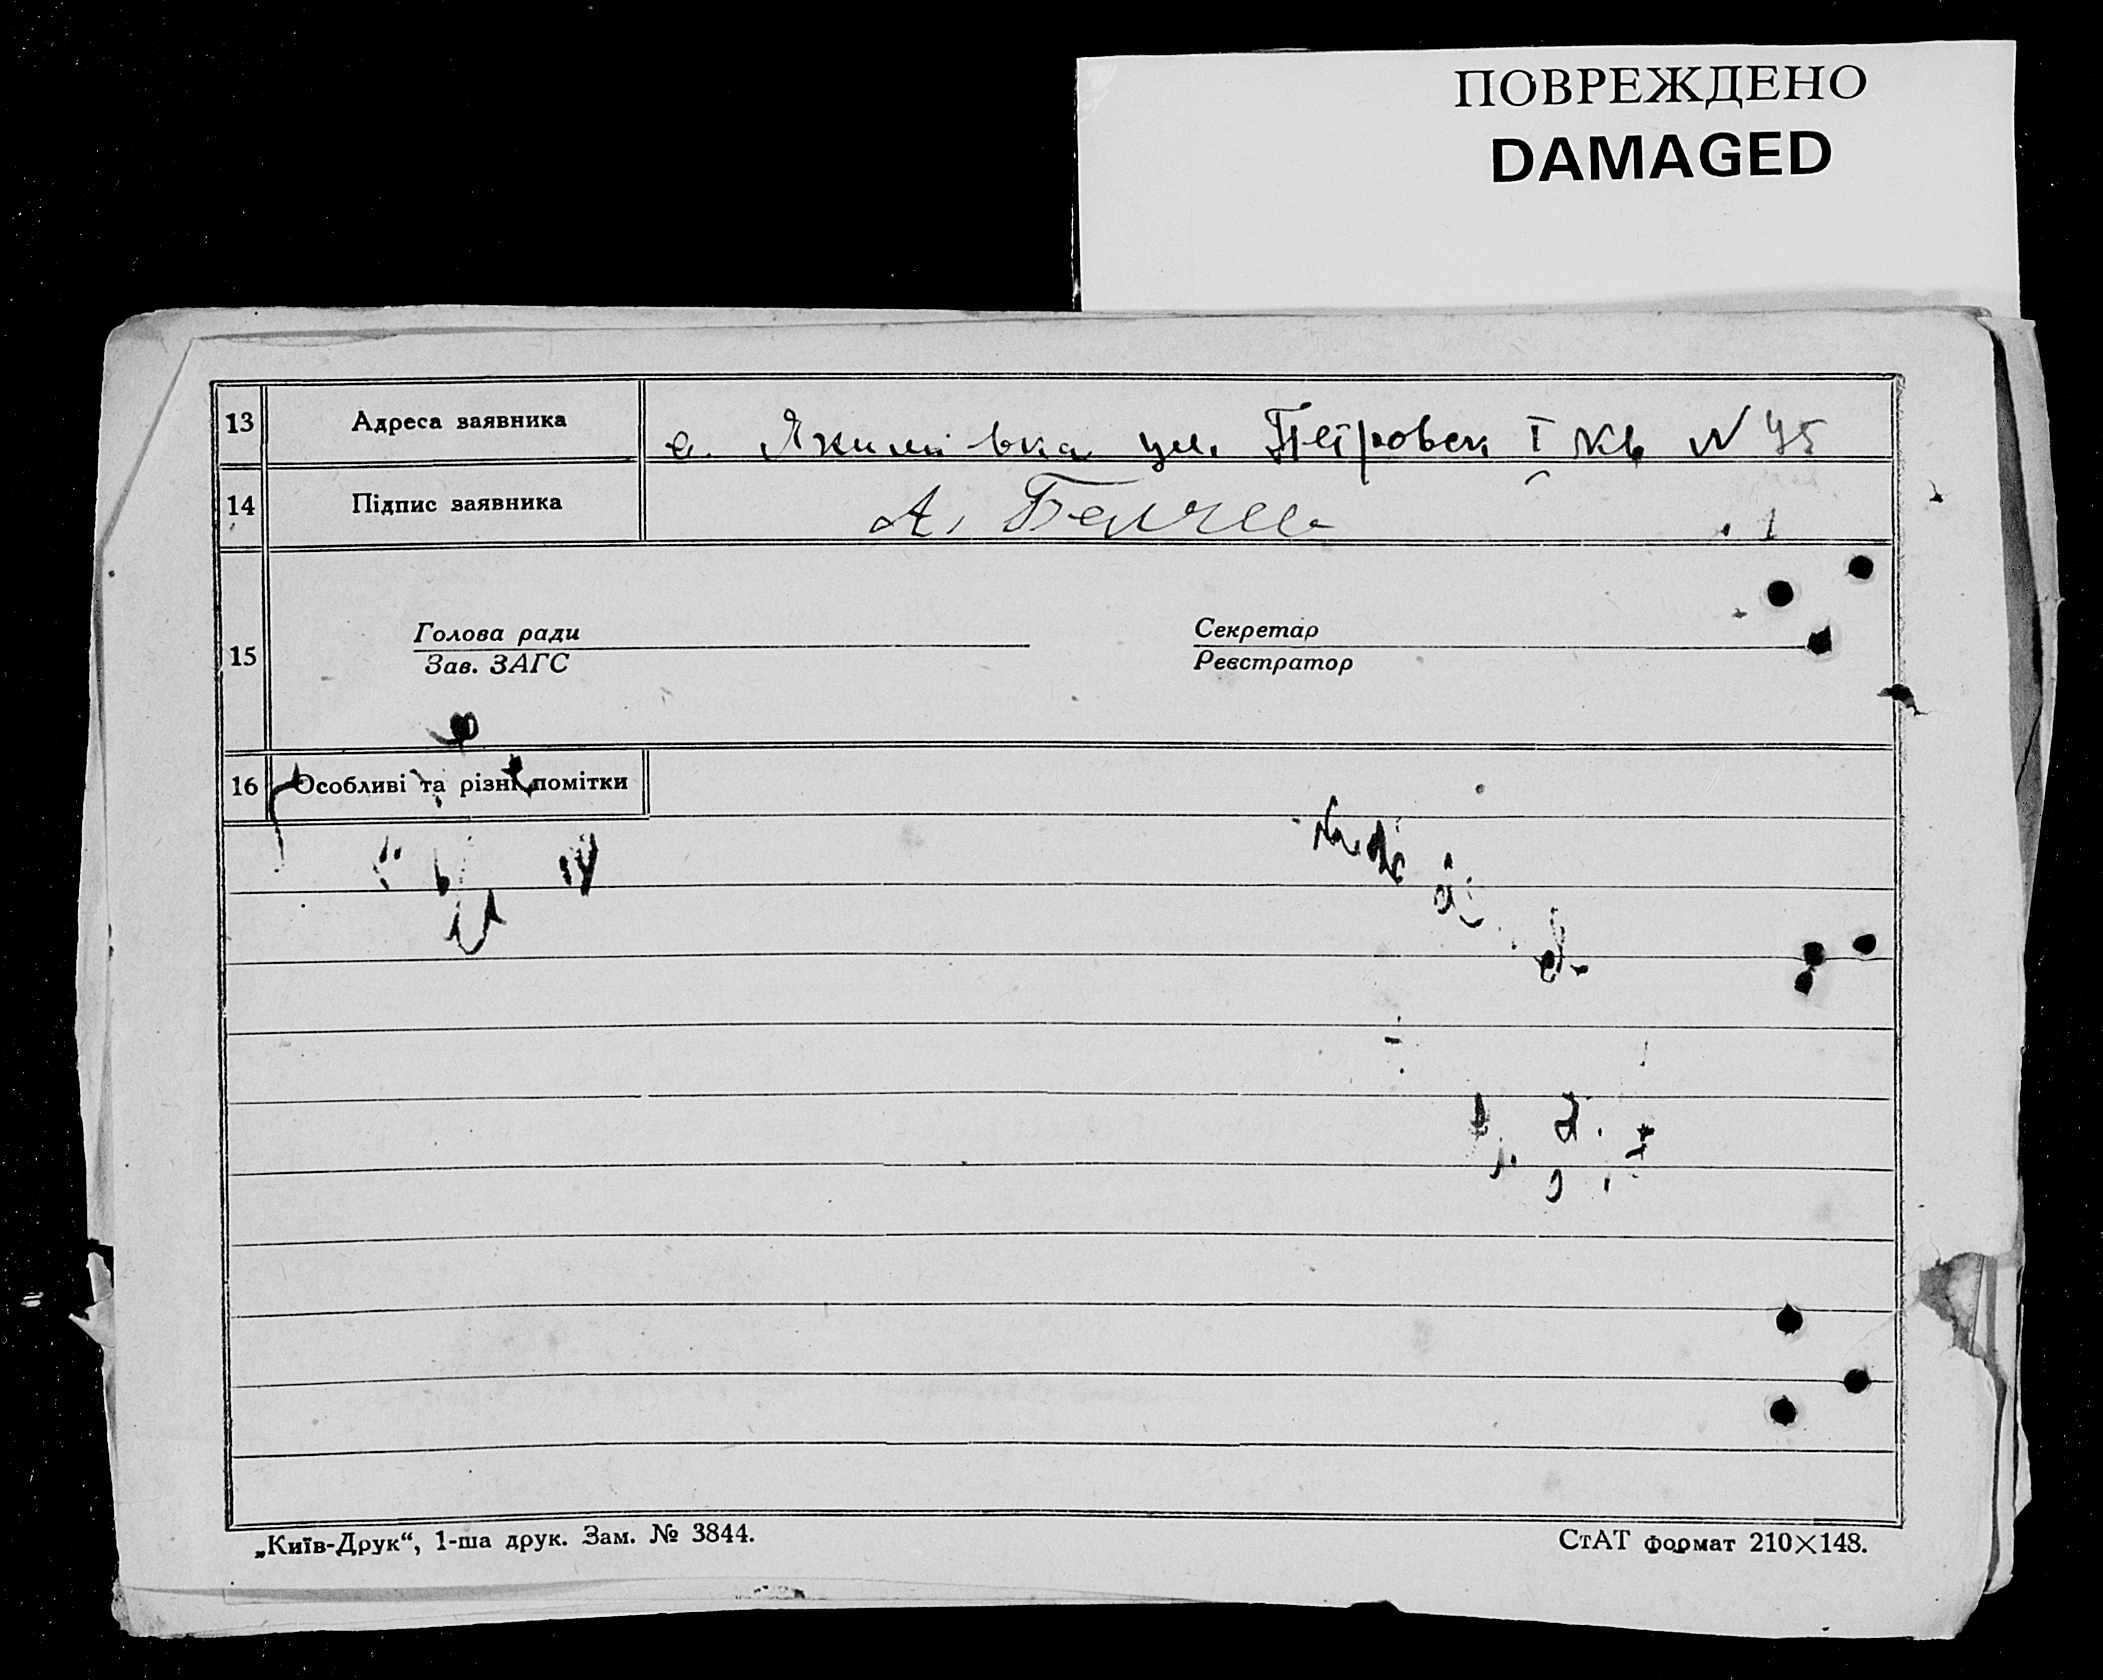 ПОВРЕЖДЕНО
DAMAGED
13 Адреса заявника с. Якимівка ул. Петровск I кв N 45
14 Підпис заявника А.
15 Голова ради Секретар
Зав. ЗАГС Реєстратор
16 Особливі та різні помітки
„Київ-Друк“, 1-ша друк. Зам. № 3844. СтАТ формат 210×148.